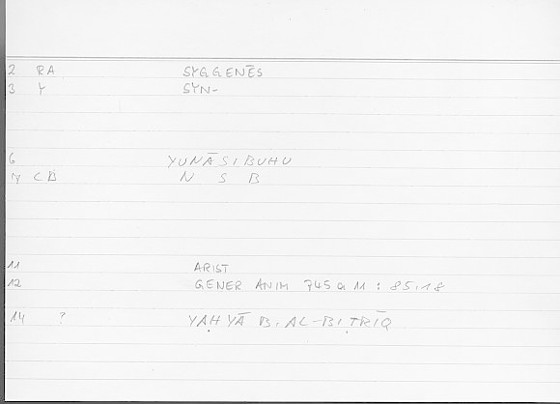 2 RA SYGGENĒS
3 Y SYN-
6 YUNĀSIBUHU
7 CB N S B
11 ARIST
12 GENER ANIM 745 a 11 : 85.18
14 ? YAḤYĀ B. AL-BIṬRĪQ